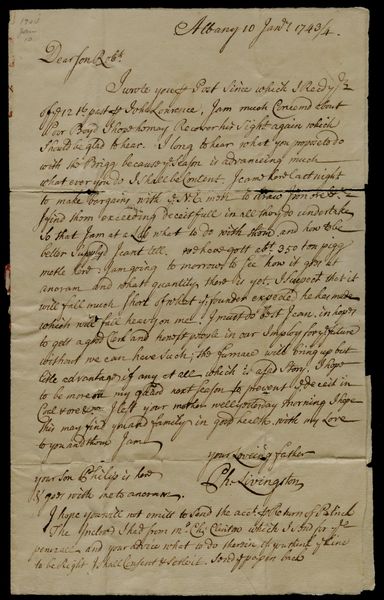 1743
Jan
10
Albany 10 Janry 1743/4
Dear Son Robt.
I wrote you Post Since which I Recd yrs
of ye 12 past John Lawrence, I am much Concernd about
Poor Boyd I hope he may Recover his Sight again which
Should be glad to hear. I long to hear what you propose to do
with the Brigg because ye Season is advanceing much
what ever you do I shall be Content. I came here last night
to make bargains with to draw
find them exceeding deceitfull in all they do undertake
So that I am at a Loss what to do with them, and how to be
better Supplyd I cant tell. we have gott abt 350 ton pigg
mettle here I am going to morrow to See how it goes at
ancram and what quantity there is yet, I Suspect that it
will fall much Short of what ye founder expected he has made
which will fall heavy on me. I must do best I can, in hopes
to gett a good Cord and honest people in our Imploy for ye future
without we can have Such, the furnace will bring up but
litle advantage if any at all which is a sad Story. I hope
to be more on my guard next Season to prevent deceid in
Coal & ore &ca I left your mother well yesterday morning I hope
This may find you and family in good health with my Love
to you and them I am
your Loveing father
Ph: Livingston
your Son Philip is here
& goes with me to ancram.
I hope you will not omitt to Send the acct. & Return of Patrick
The Inclosd I had from mr. Chs Clinton which I Send for yr
perusall and your advice what to do therein if you think ye Line
to be Right I shall Consent & Settle it. Send ye paper back